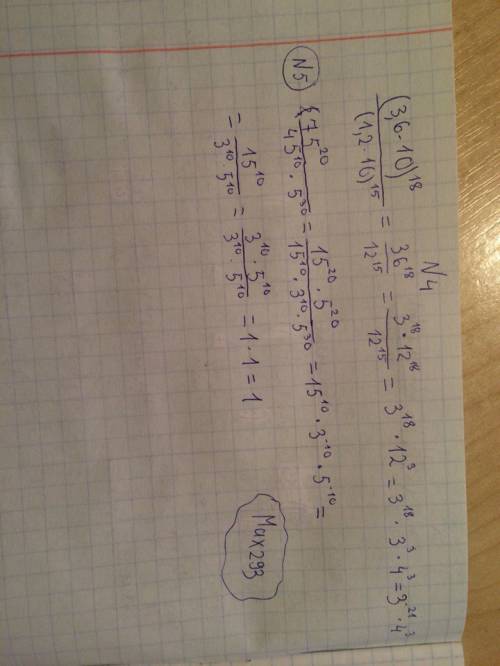 N4
(3,6·10)^18 / (1,2·10)^15 = 36^18 / 12^15 = 3^18·12^18 / 12^15 = 3^18 · 12^3 = 3^18 · 3^3 · 4^3 = 3^21 · 4^3
N5 75^20 / 45^10 · 5^30 = 15^20 · 5^20 / 15^10 · 3^10 · 5^30 = 15^10 · 3^-10 · 5^-10 =
= 15^10 / 3^10 · 5^10 = 3^10 · 5^10 / 3^10 · 5^10 = 1 · 1 = 1
Max293